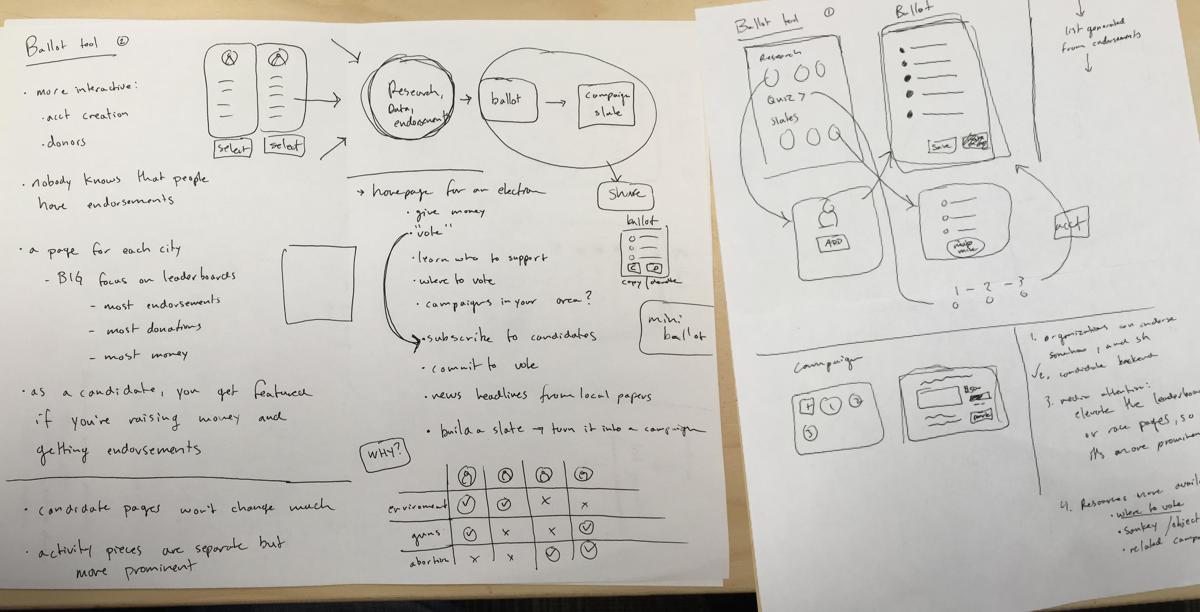 Ballot tool ②
• more interactive:
• acct creation
• donors
• nobody knows that people
have endorsements
• a page for each city
- BIG focus on leaderboards
- most endorsements
- most donations
- most money
• as a candidate, you get featured
if you're raising money and
getting endorsements
• candidate pages won't change much
• activity pieces are separate but
more prominent
select
select
Research,
Data,
endorsements
ballot
campaign
slate
share
→ homepage for an election
• give money
• "vote"
• learn who to support
• where to vote
• campaigns in your area?
• subscribe to candidates
• commit to vote
• news headlines from local papers
• build a slate → turn it into a campaign
ballot
C
D
copy / donate
mini
ballot
WHY?
enviroment
guns
abortion
Ballot tool ①
Research
Quiz >
Slates
ADD
Ballot
Save
list generated
from endorsements
make
mine
acct
1 - 2 - 3
Campaign
+ 1 2
3
1. organizations can endorse
, and sh
2. candidate backend
3. media attention:
elevate the leaderboa
or race pages, so
it's more prominen
4. Resources more avail
• where to vote
• /object
• related camp